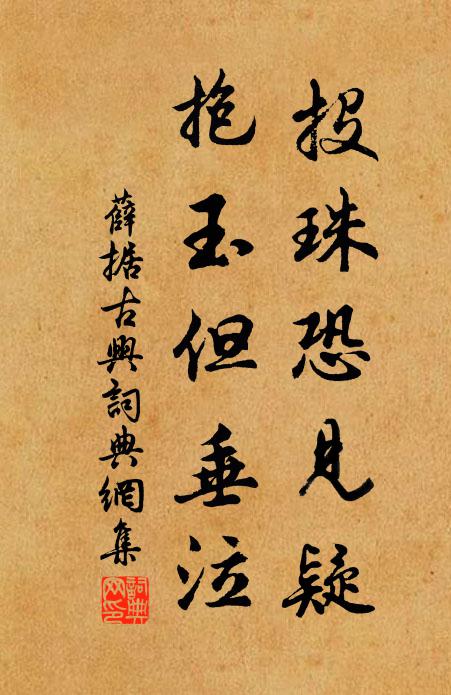 投珠恐見疑
抱玉但垂泣
薛据古興詞典網集
詞典網印